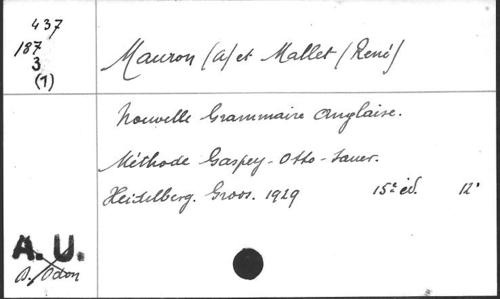 437
187
3
(1)
Mauron (A) et Mallet (René)
Nouvelle Grammaire Anglaise.
Méthode Gaspey-Otto-Sauer.
Heidelberg. Groos. 1929 15e éd. 12°
A.U.
D./Odon